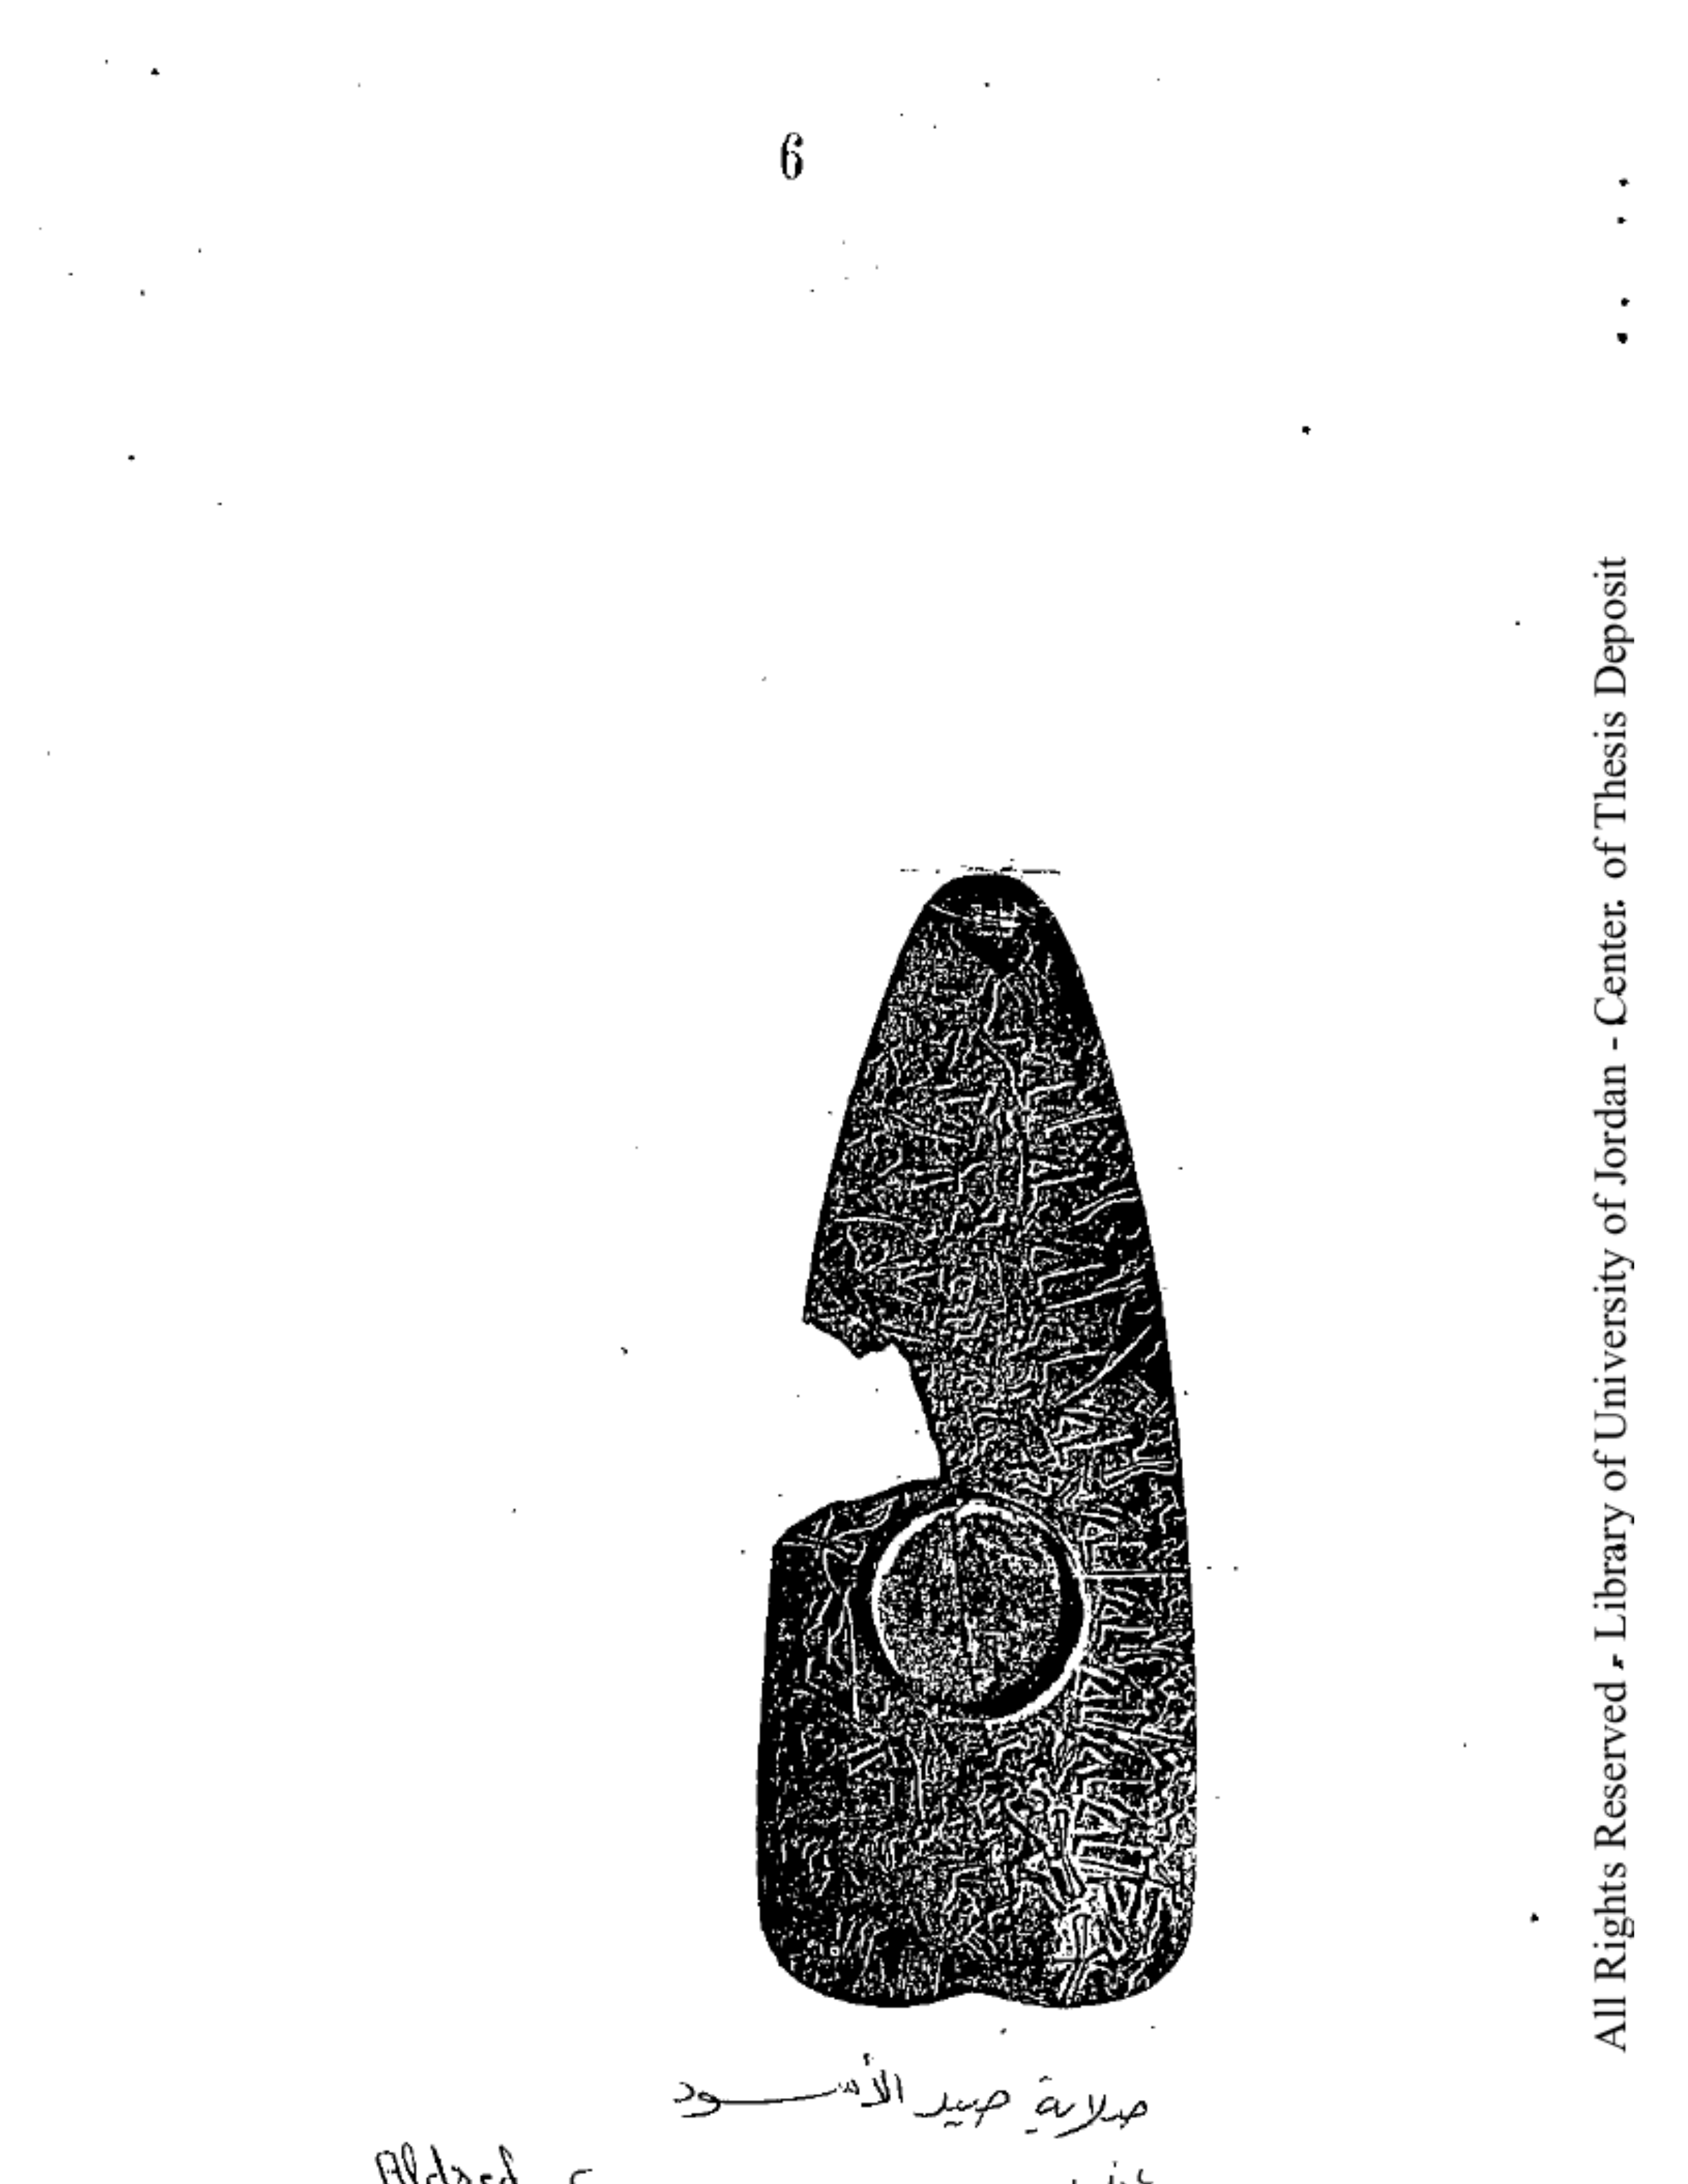 6
صلاية صيد الأسود
Aldred
All Rights Reserved - Library of University of Jordan - Center of Thesis Deposit